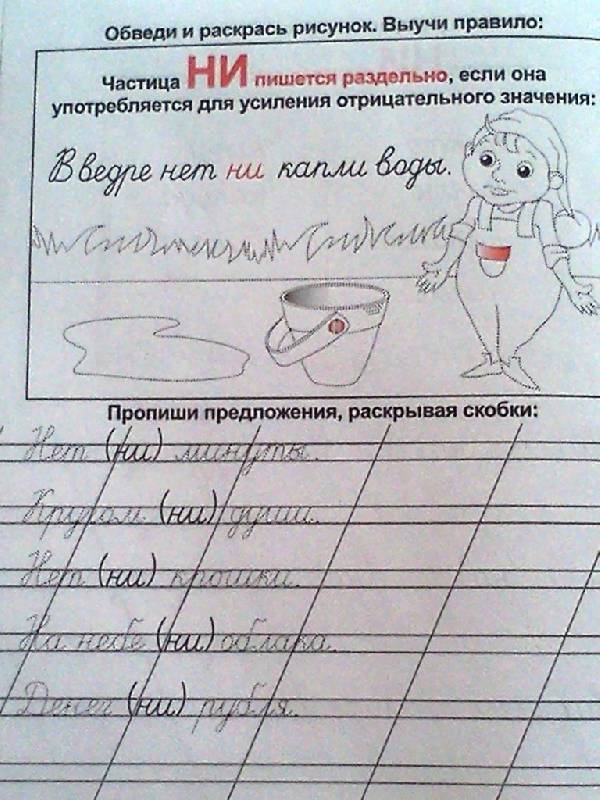 Обведи и раскрась рисунок. Выучи правило:
Частица НИ пишется раздельно, если она
употребляется для усиления отрицательного значения:
В ведре нет ни капли воды.
Пропиши предложения, раскрывая скобки:
Нет (ни) минуты.
Кругом (ни) души.
Нет (ни) крошки.
На небе (ни) облака.
Денег (ни) рубля.